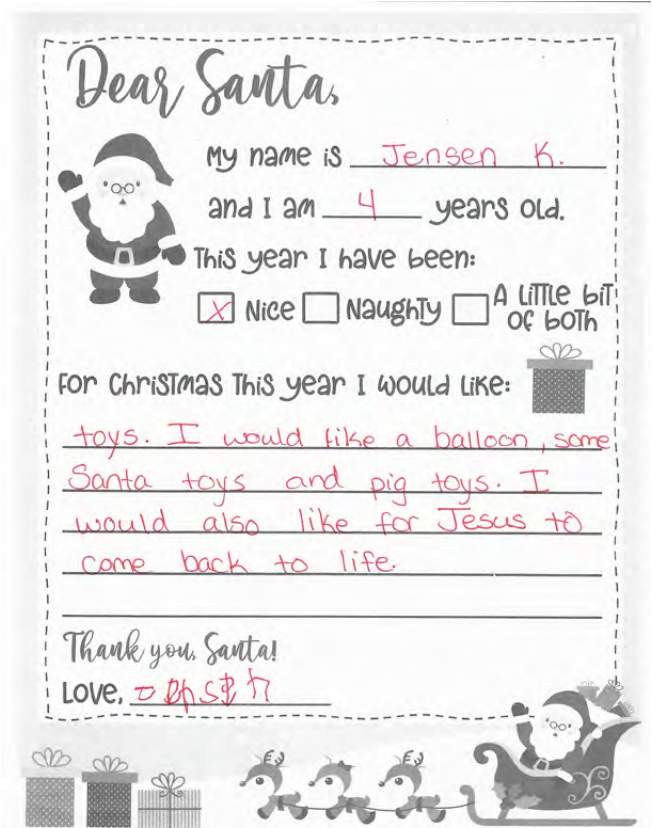 Dear Santa,
My name is Jensen K.
and I am 4 years old.
This year I have been:
X Nice Naughty A little bit of both
For Christmas this year I would like:
toys. I would like a balloon, some
Santa toys and pig toys. I
would also like for Jesus to
come back to life.
Thank you, Santa!
Love,